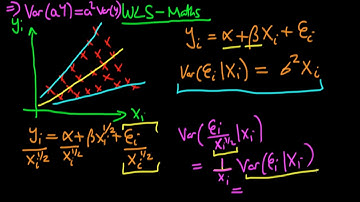 => Var(aY) = a²Var(y) WLS - Maths
yᵢ
xᵢ
yᵢ = α + βxᵢ + εᵢ
Var(εᵢ|xᵢ) = σ²xᵢ
yᵢ/xᵢ^1/2 = α/xᵢ^1/2 + βxᵢ^1/2 + εᵢ/xᵢ^1/2
Var(εᵢ/xᵢ^1/2 | xᵢ)
= 1/xᵢ Var(εᵢ|xᵢ)
=